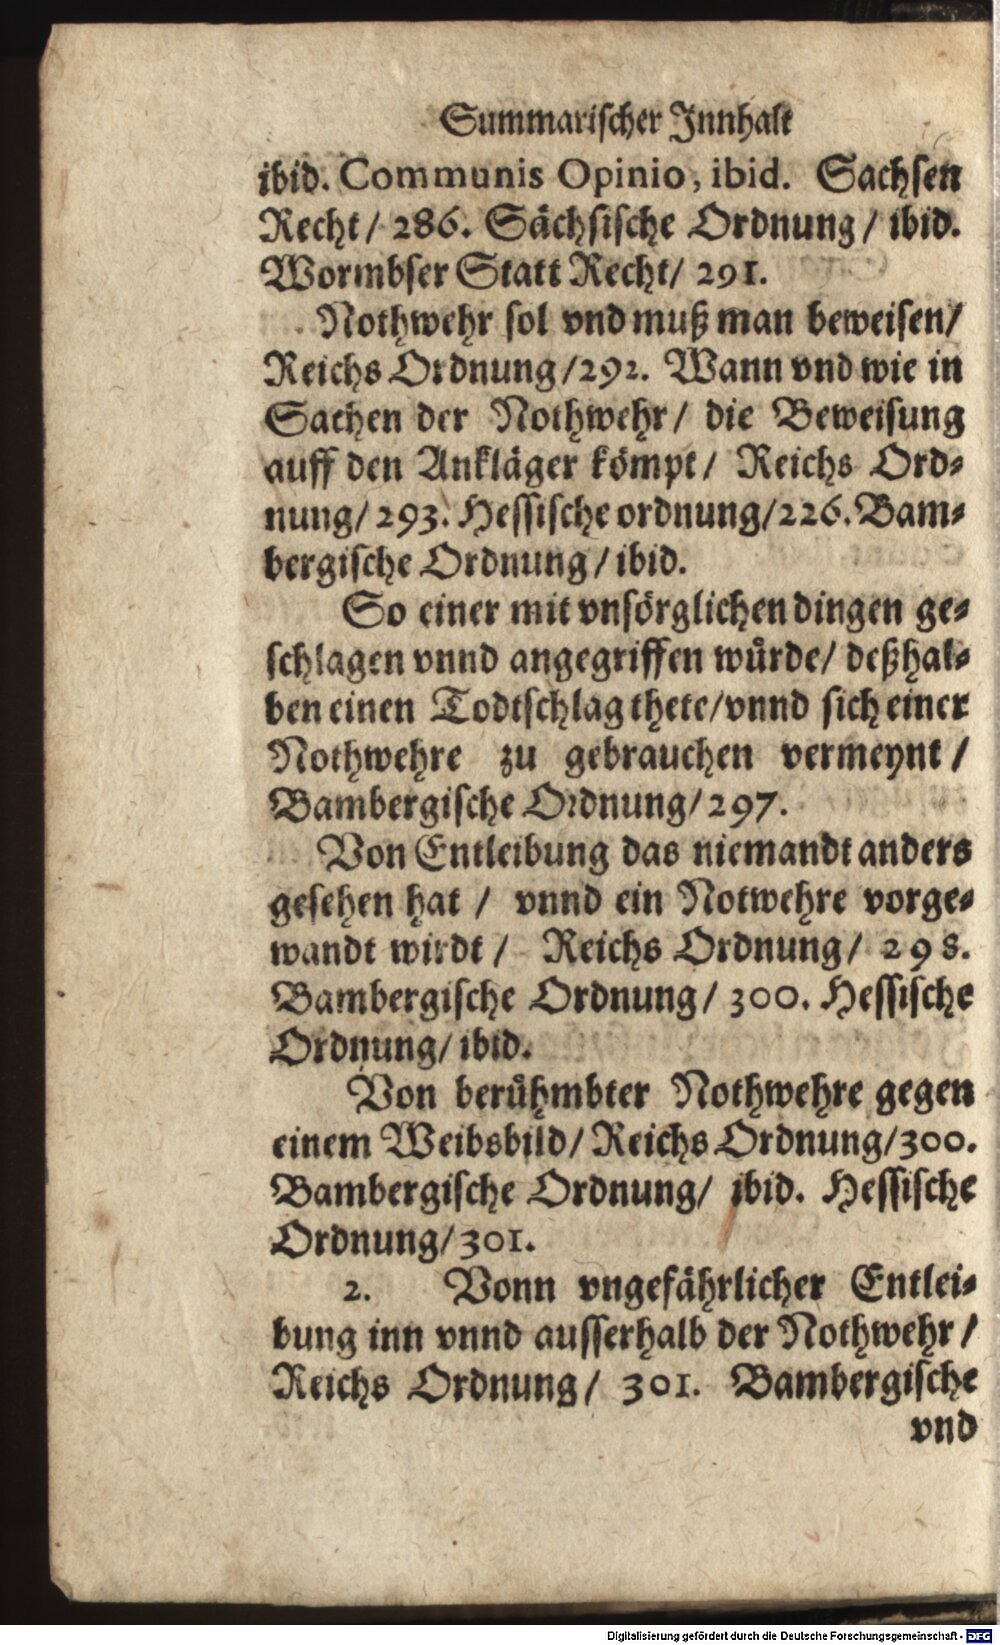 Summarischer Innhalt
ibid. Communis Opinio, ibid. Sachsen
Recht/ 286. Sächsische Ordnung/ ibid.
Wormbser Statt Recht/ 291.
Nothwehr sol vnd muß man beweisen/
Reichs Ordnung/292. Wann vnd wie in
Sachen der Nothwehr/ die Beweisung
auff den Ankläger kömpt/ Reichs Ord-
nung/ 293. Hessische ordnung/226. Bam-
bergische Ordnung/ ibid.
So einer mit vnsörglichen dingen ge-
schlagen vnnd angegriffen wůrde/ deßhal-
ben einen Todtschlag thete/vnnd sich einer
Nothwehre zu gebrauchen vermeynt/
Bambergische Ordnung/297.
Von Entleibung das niemandt anders
gesehen hat / vnnd ein Notwehre vorge-
wandt wirdt / Reichs Ordnung/ 298.
Bambergische Ordnung/ 300. Hessische
Ordnung/ ibid.
Von berůhmbter Nothwehre gegen
einem Weibsbild/ Reichs Ordnung/300.
Bambergische Ordnung/ ibid. Hessische
Ordnung/301.
2. Vonn vngefährlicher Entlei-
bung inn vnnd ausserhalb der Nothwehr/
Reichs Ordnung/ 301. Bambergische
vnd
Digitalisierung gefördert durch die Deutsche Forschungsgemeinschaft - DFG